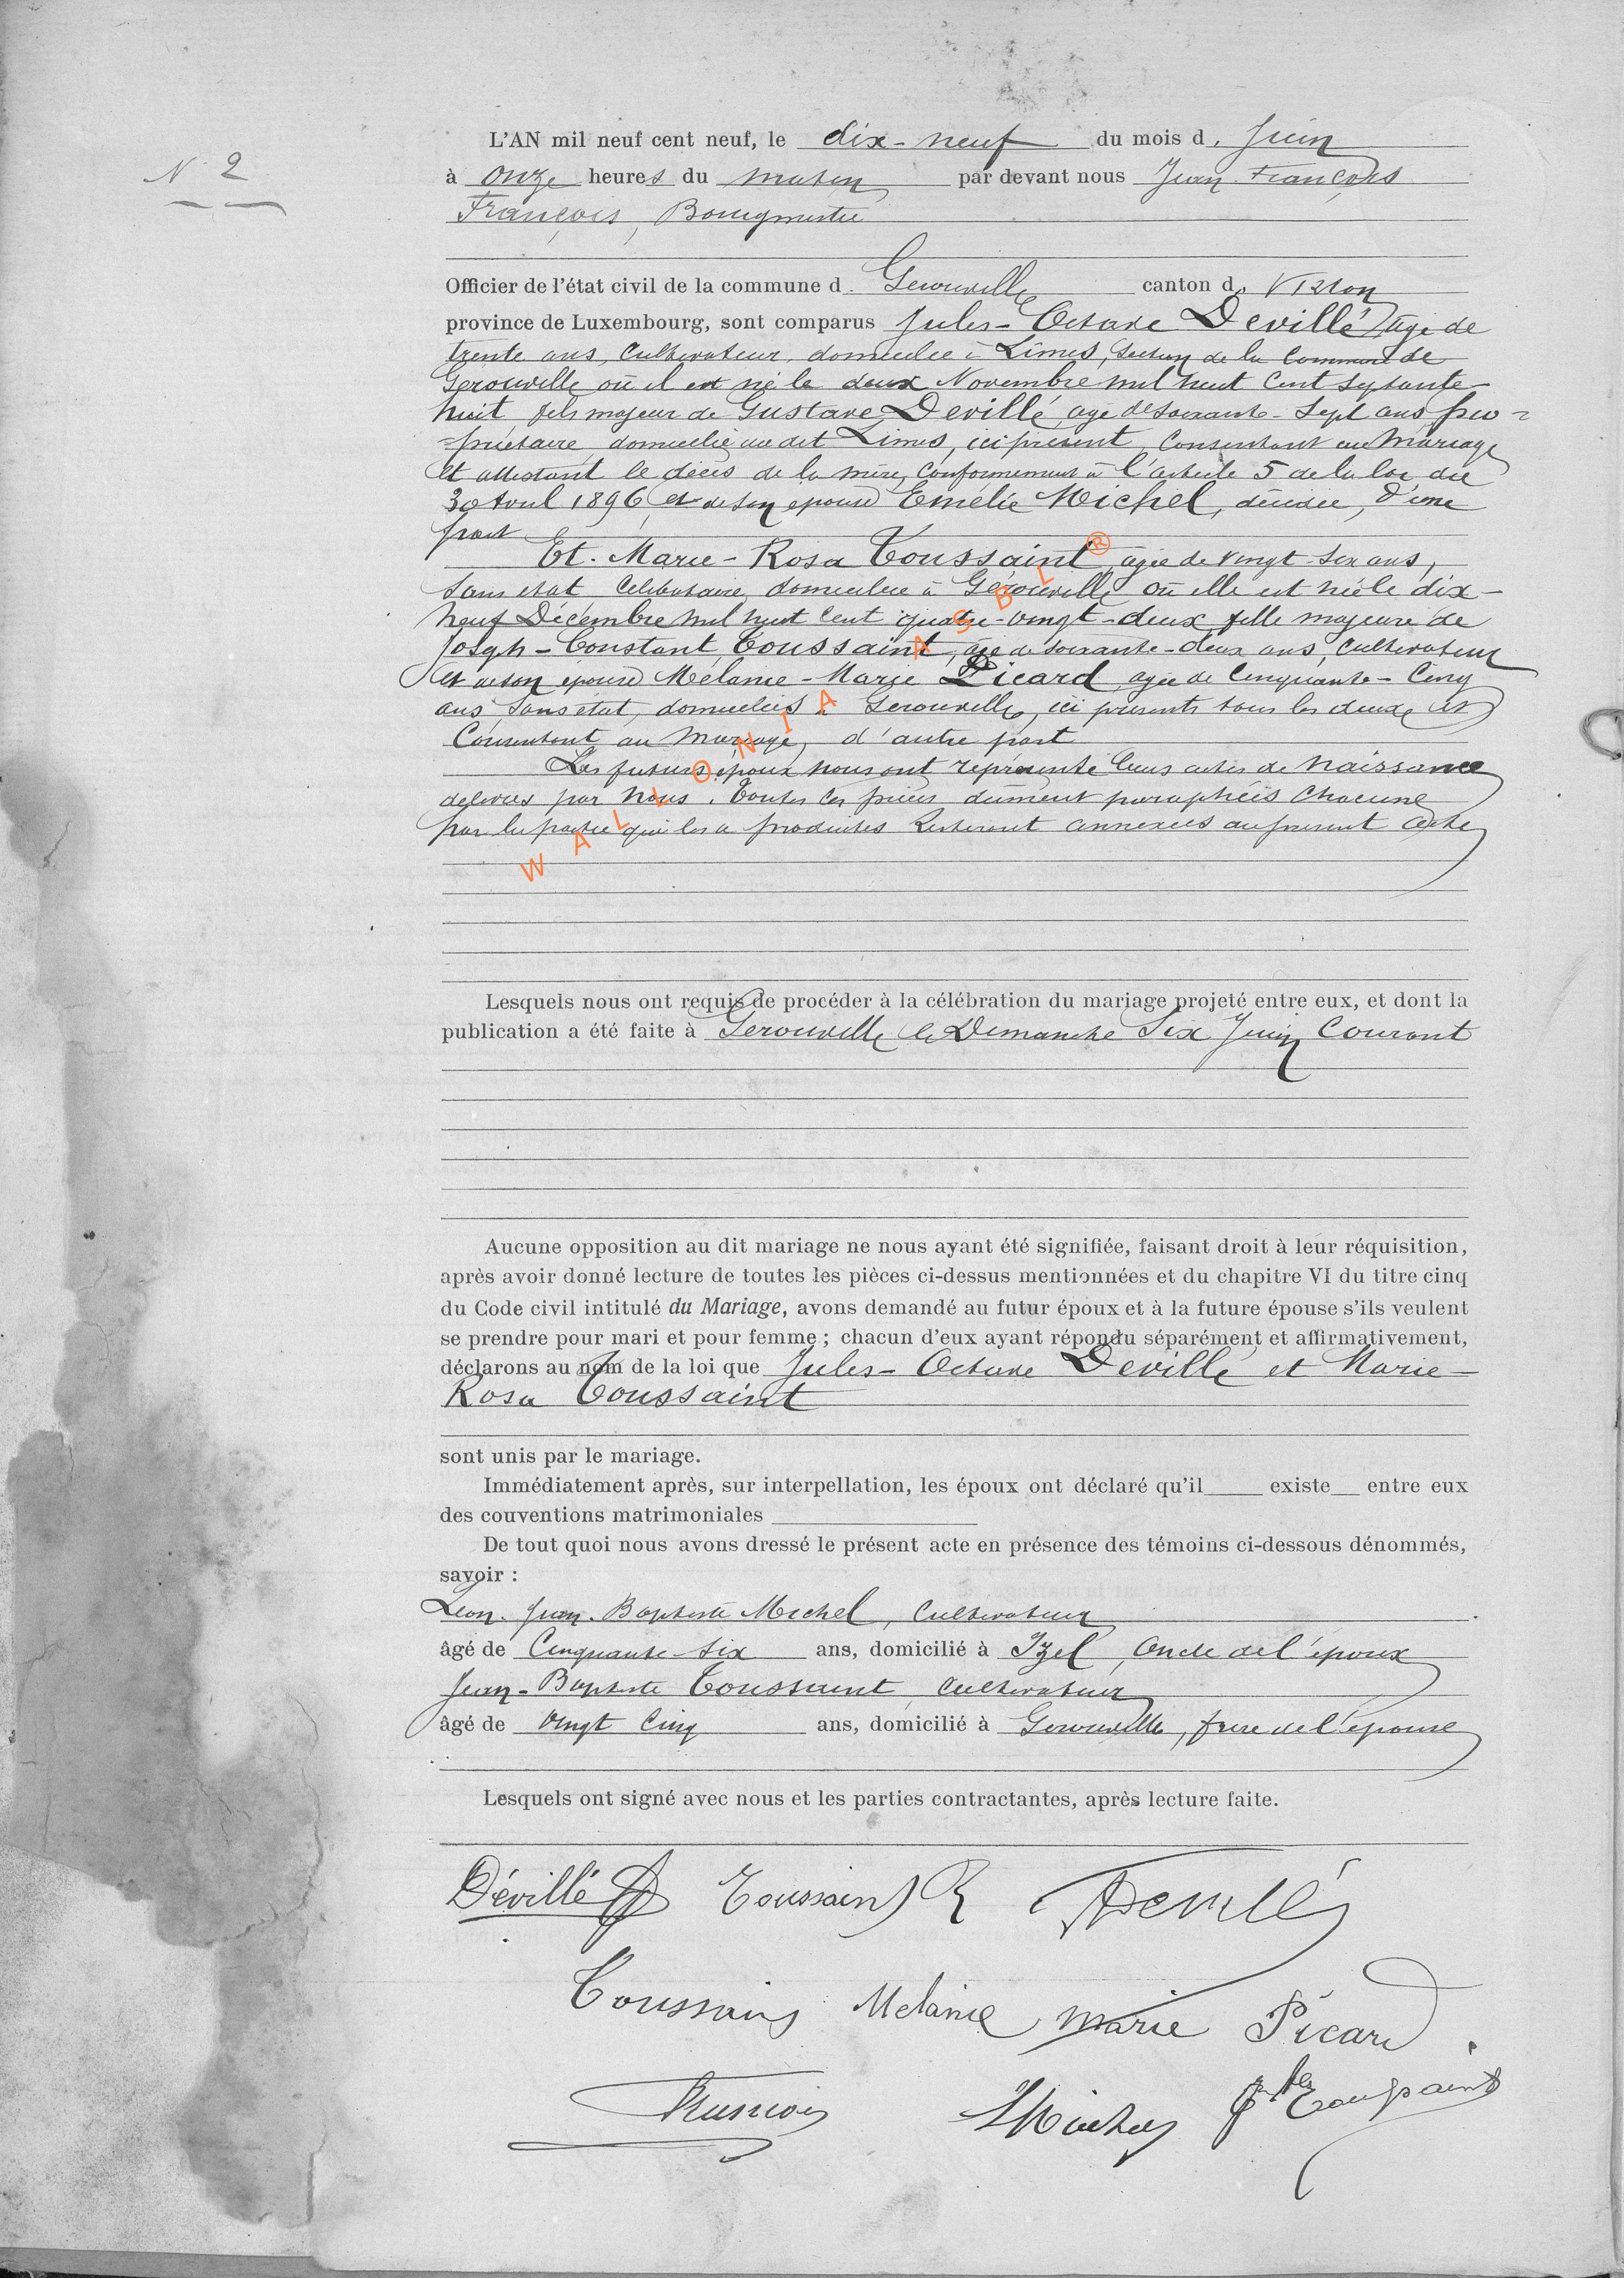 N° 2
L'AN mil neuf cent neuf, le dix-neuf du mois d. Juin
à onze heures du matin par devant nous Jean François
François, Bourgmestre
Officier de l'état civil de la commune d. Gerouville canton d. Virton
province de Luxembourg, sont comparus Jules-Octave Devillé, âgé de
trente ans, cultivateur, domicilié à Limes, section de la commune de
Gerouville où il est né le deux Novembre mil huit cent septante-
huit, fils majeur de Gustave Devillé, agé de soixante-sept ans pro-
=priétaire, domicilié au dit Limes, ici présent, consentant au mariage
et attestant le décès de la mère, conformement à l'article 5 de la loi du
30 Avril 1896, et de son épouse Emélie Michel, décédée, d'une
part
Et. Marie-Rosa Toussaint, agée de vingt-six ans,
sans état célibataire, domiciliée à Gérouville où elle est née le dix-
neuf Décembre mil huit cent quatre-vingt-deux fille majeure de
Joseph-Constant Toussaint, âgé de soixante-deux ans, cultivateur
et de son épouse Mélanie-Marie Picard, agée de cinquante-cinq
ans, sans état, domiciliés à Gerouville, ici présents tous les deux et
consentant au mariage, d'autre part
Les futurs époux nous ont représenté leurs actes de naissance
délivrés par nous. Toutes ces pièces dûment paraphées chacune
par la partie qui les a produites resteront annexées au présent acte
WALLONIA ASBL ®
Lesquels nous ont requis de procéder à la célébration du mariage projeté entre eux, et dont la
publication a été faite à Gerouville le Dimanche six Juin courant
Aucune opposition au dit mariage ne nous ayant été signifiée, faisant droit à leur réquisition,
après avoir donné lecture de toutes les pièces ci-dessus mentionnées et du chapitre VI du titre cinq
du Code civil intitulé du Mariage, avons demandé au futur époux et à la future épouse s'ils veulent
se prendre pour mari et pour femme ; chacun d'eux ayant répondu séparément et affirmativement,
déclarons au nom de la loi que Jules-Octave Devillé et Marie-
Rosa Toussaint
sont unis par le mariage.
Immédiatement après, sur interpellation, les époux ont déclaré qu'il existe entre eux
des conventions matrimoniales
De tout quoi nous avons dressé le présent acte en présence des témoins ci-dessous dénommés,
savoir :
Léon-Jean-Baptiste Michel, cultivateur
âgé de Cinquante-six ans, domicilié à Izel, oncle de l'époux
Jean-Baptiste Toussaint, cultivateur
âgé de vingt cinq ans, domicilié à Gerouville, frère de l'épouse
Lesquels ont signé avec nous et les parties contractantes, après lecture faite.
Dévillé Toussaint R Devillé
Toussaint Melanie marie Picard
François LMichel Toussaint